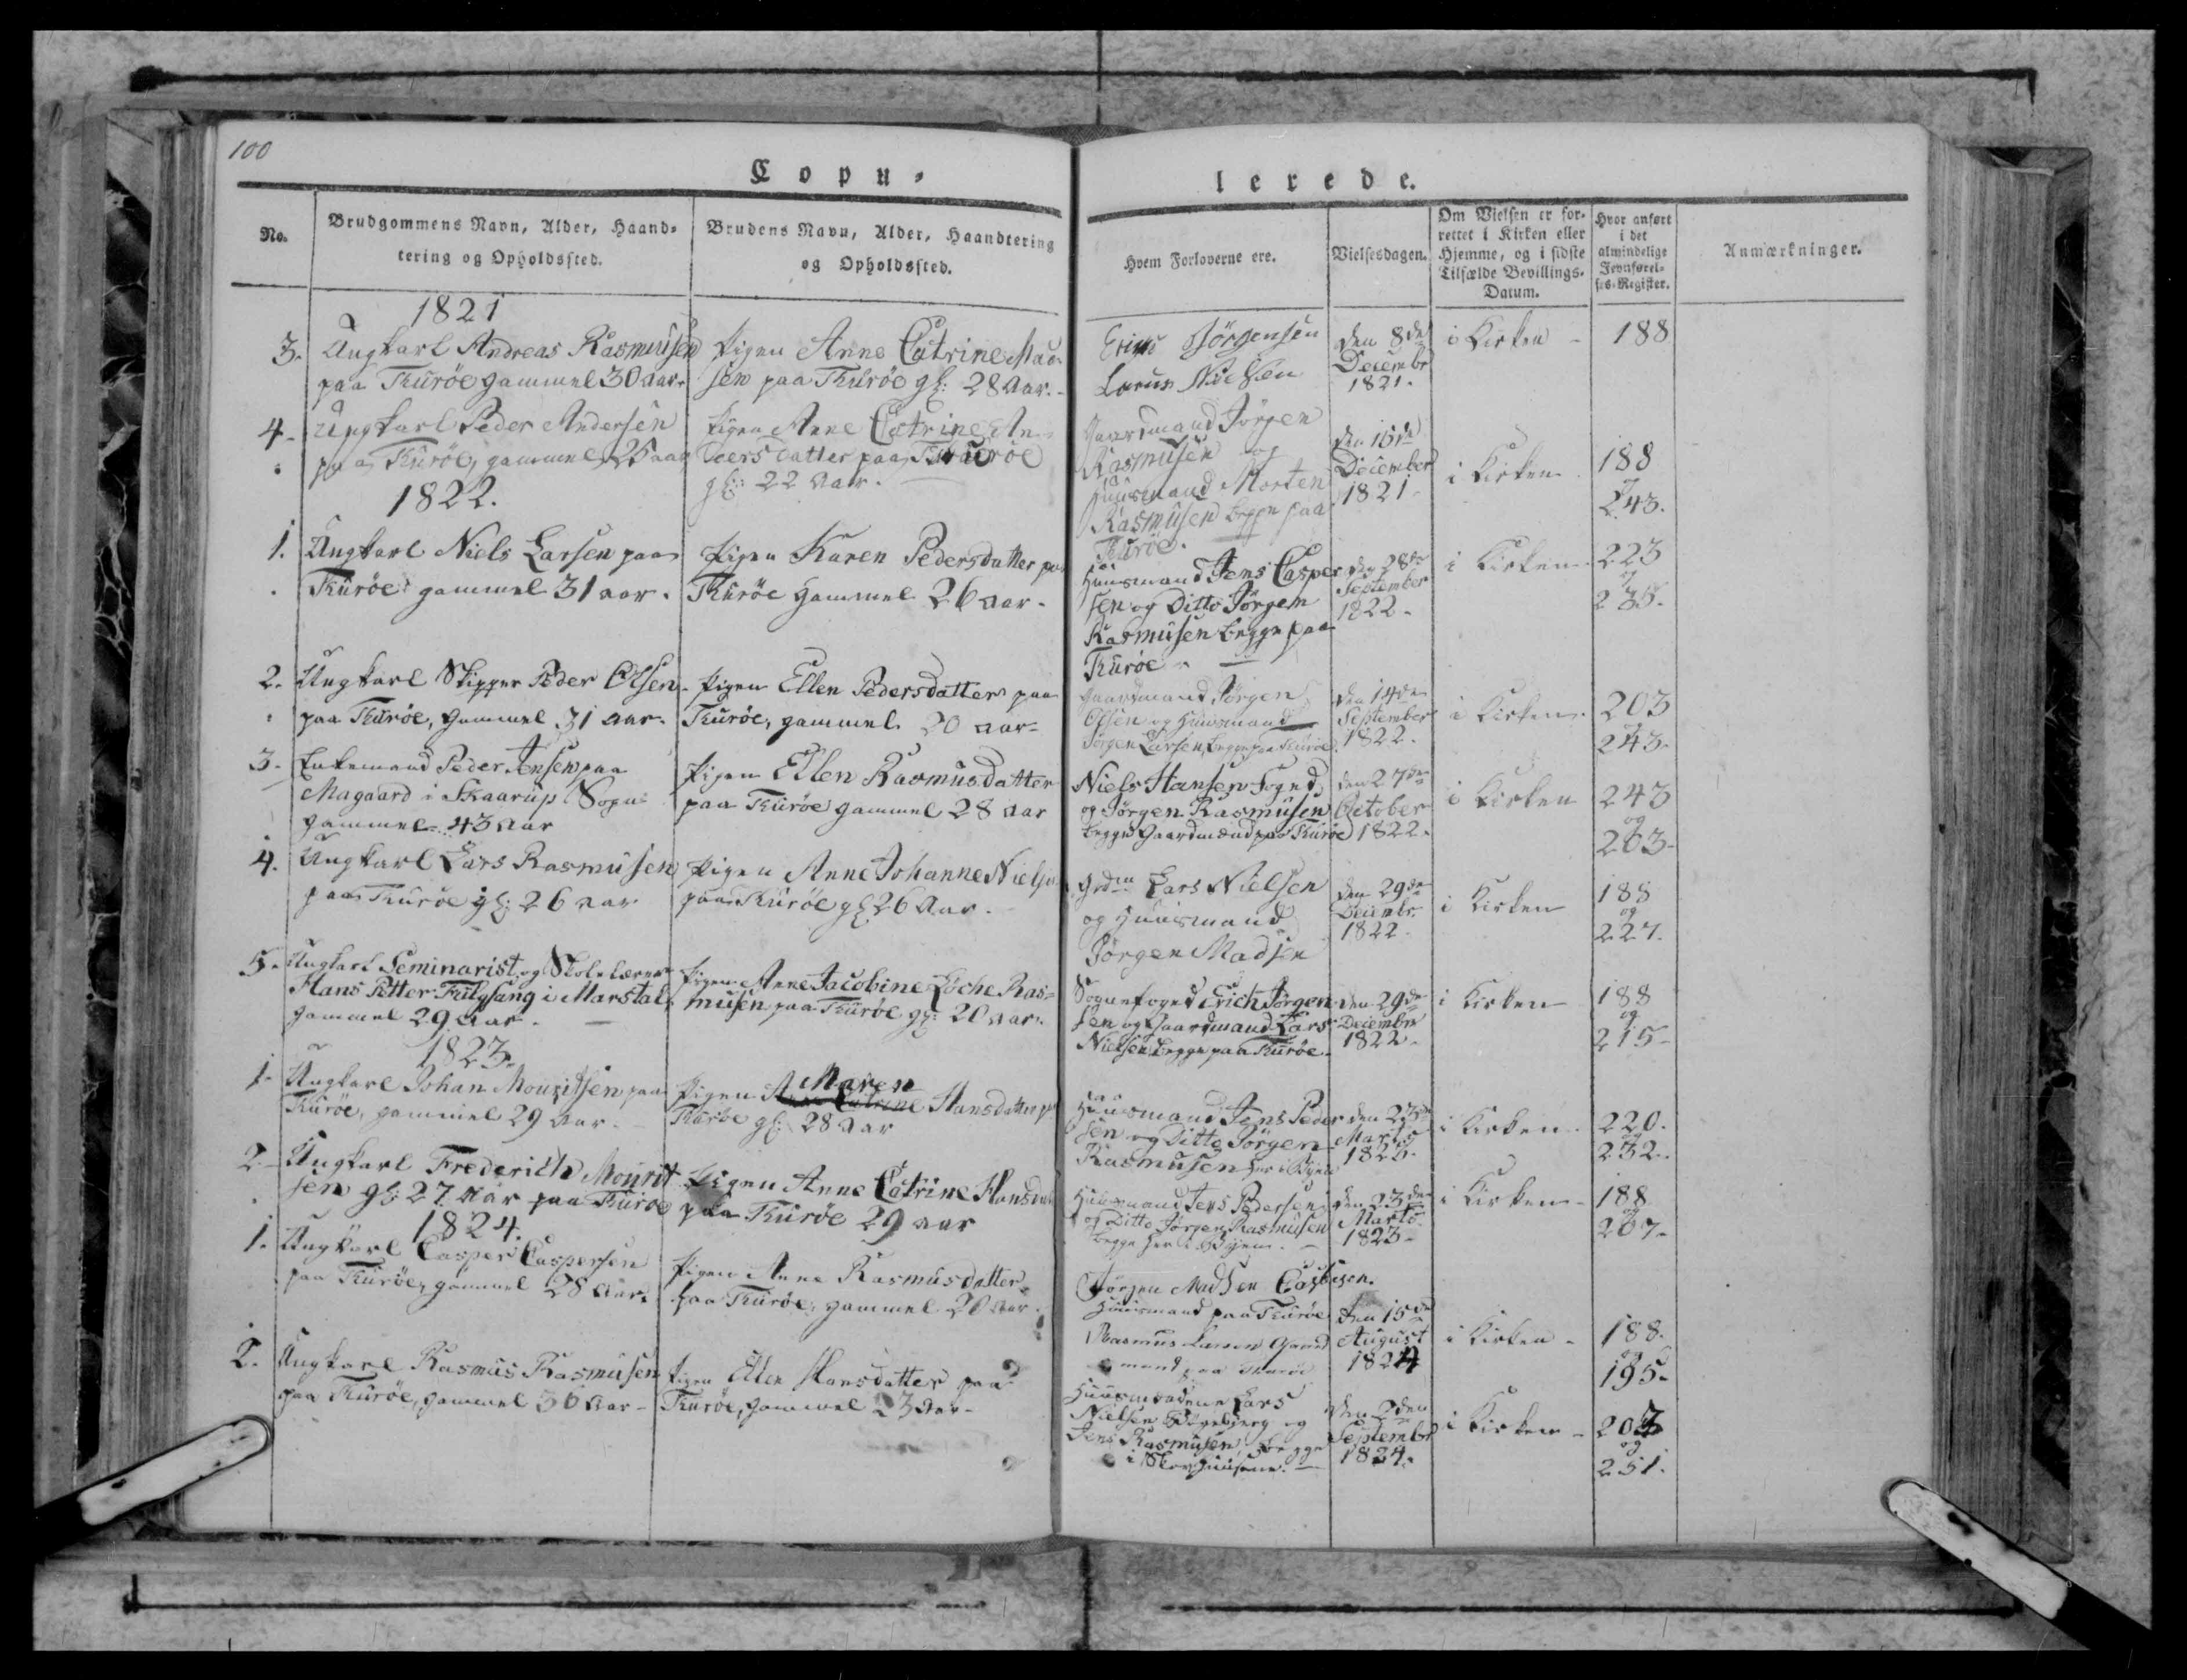 100
Copu-
lerede.
No.
Brudgommens Navn, Alder, Haand-
tering og Opholdssted.
Brudens Navn, Alder, Haandtering
og Opholdssted.
Hvem Forloverne ere.
Vielsesdagen.
Om Vielsen er for-
rettet i Kirken eller
Hjemme, og i sidste
Tilfælde Bevillings-
Datum.
Hvor anført
i det
almindelige
Jevnførel-
ses-Register.
Anmærkninger.
1821
3.
Ungkarl Andreas Rasmusen
paa Thurøe gammel 30 Aar.
Pigen Anne Catrine Mad-
sen paa Thurøe gl: 28 Aar.
Erich Jörgensen
Larus Nielsen
den 8de
Decembr
1821.
i Kirken
188
4.
Ungkarl Peder Andersen
paa Thurøe, gammel 25 aar
Pigen Anne Catrine An-
dersdatter paa Thurøe
gl: 22 Aar.
Gaardmand Jörgen
Rasmusen og
Huusmand Morten
Rasmusen begge paa
Thurøe.
den 15de
December
1821
i Kirken
188
og
243.
1822.
1.
Ungkarl Niels Larsen paa
Thurøe gammel 31 aar.
Pigen Karen Pedersdatter paa
Thurøe gammel 26 aar.
Huusmand Jens Casper
sen og Ditto Jörgen
Rasmusen begge paa
Thurøe
den 28de
September
1822.
i Kirken
223
og
235.
2.
Ungkarl Skipper Peder Olsen
paa Thurøe, gammel 31 aar.
Pigen Ellen Pedersdatter paa
Thurøe, gammel 20 aar
Gaardmand Jörgen
Olsen og Huusmand
Jörgen Larsen, begge paa Thurøe
den 14de
September
1822.
i Kirken
203
og
243.
3.
Enkemand Peder Jensen paa
Magaard i Skaarup Sogn
gammel 43 Aar
Pigen Ellen Rasmusdatter
paa Thurøe gammel 28 aar
Niels Hansen Foged
og Jörgen Rasmusen
begge Gaardmænd paa Thurøe
den 27de
October
1822.
i Kirken
243
og
203.
4.
Ungkarl Lars Rasmusen
paa Thurøe gl: 26 aar
Pigen Anne Johanne Niels
paa Thurøe gl: 26 Aar.
Grdm Lars Nielsen
og Huusmand
Jörgen Madsen
den 29de
Decembr.
1822.
i Kirken
188
og
227.
5.
Ungkarl Seminarist og Skolelærer
Hans Petter Fuglsang i Marstal,
gammel 29 Aar.
Pigen Anne Jacobine Loche Ras-
musen paa Thurøe gl: 20 aar.
Sognefoged Erich Jörgen-
sen og Gaardmand Lars
Nielsen, begge paa Thurøe.
den 29de
Decembr
1822.
i Kirken
188
og
215.
1823.
1.
Ungkarl Johan Mouritsen paa
Thurøe, gammel 29 Aar.
Maren
Pigen Anne Catrine Hansdatter p
Thurøe gl: 28 Aar
Huusmand Jens Peder
sen og Ditto Jörgen
Rasmusen her i Byen
den 23de
Marts
1823.
i Kirken
220.
og
232.
2.
Ungkarl Frederich Mourit
sen gl: 27 Aar paa Thurøe
Pigen Anne Catrine Hansdat
paa Thurøe 29 aar
Huusmand Jens Pedersen
og Ditto Jörgen Rasmusen
begge her i Byen.
den 23de
Marts
1823.
i Kirken
188
og
207.
1824.
1.
Ungkarl Casper Caspersen
paa Thurøe, gammel 28 Aar.
Pigen Anne Rasmusdatter
paa Thurøe, gammel 20 Aar.
Jörgen Madsen
Huusmand paa Thurøe
Rasmus Larsen Gaard
mand paa Thurøe
den 15de
August
1824
i Kirken
188.
og
195.
2.
Ungkarl Rasmus Rasmusen
paa Thurøe, gammel 36 Aar
Pigen Ellen Hansdatter paa
Thurøe, gammel 23 Aar
Huusmændene Lars
Nielsen Bögebjerg og
Jens Rasmusen, begge
i Skovhuusene.
den 2den
Septembr
1824.
i Kirken
203
og
251.